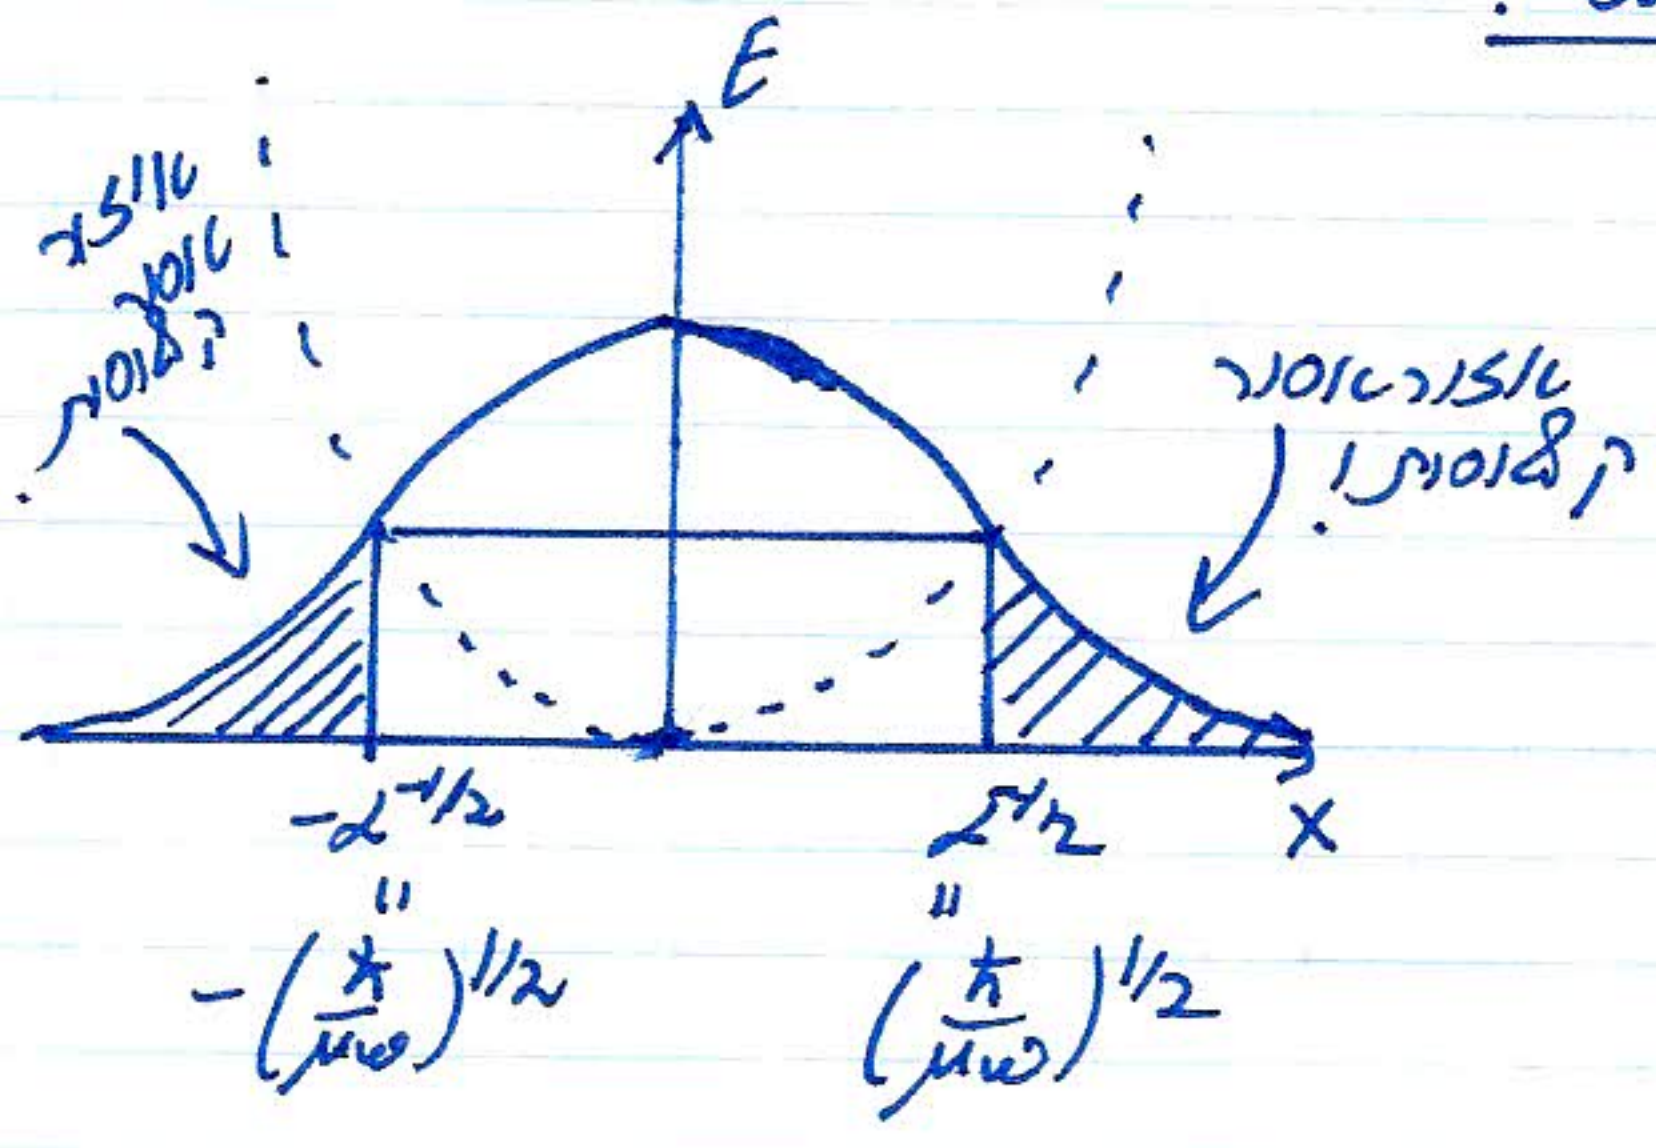 E
אזור
אסור
קלאסית.
אזור אסור
קלאסית!
-α^{-1/2}
α^{-1/2}
X
"
"
-(ℏ/μω)^{1/2}
(ℏ/μω)^{1/2}